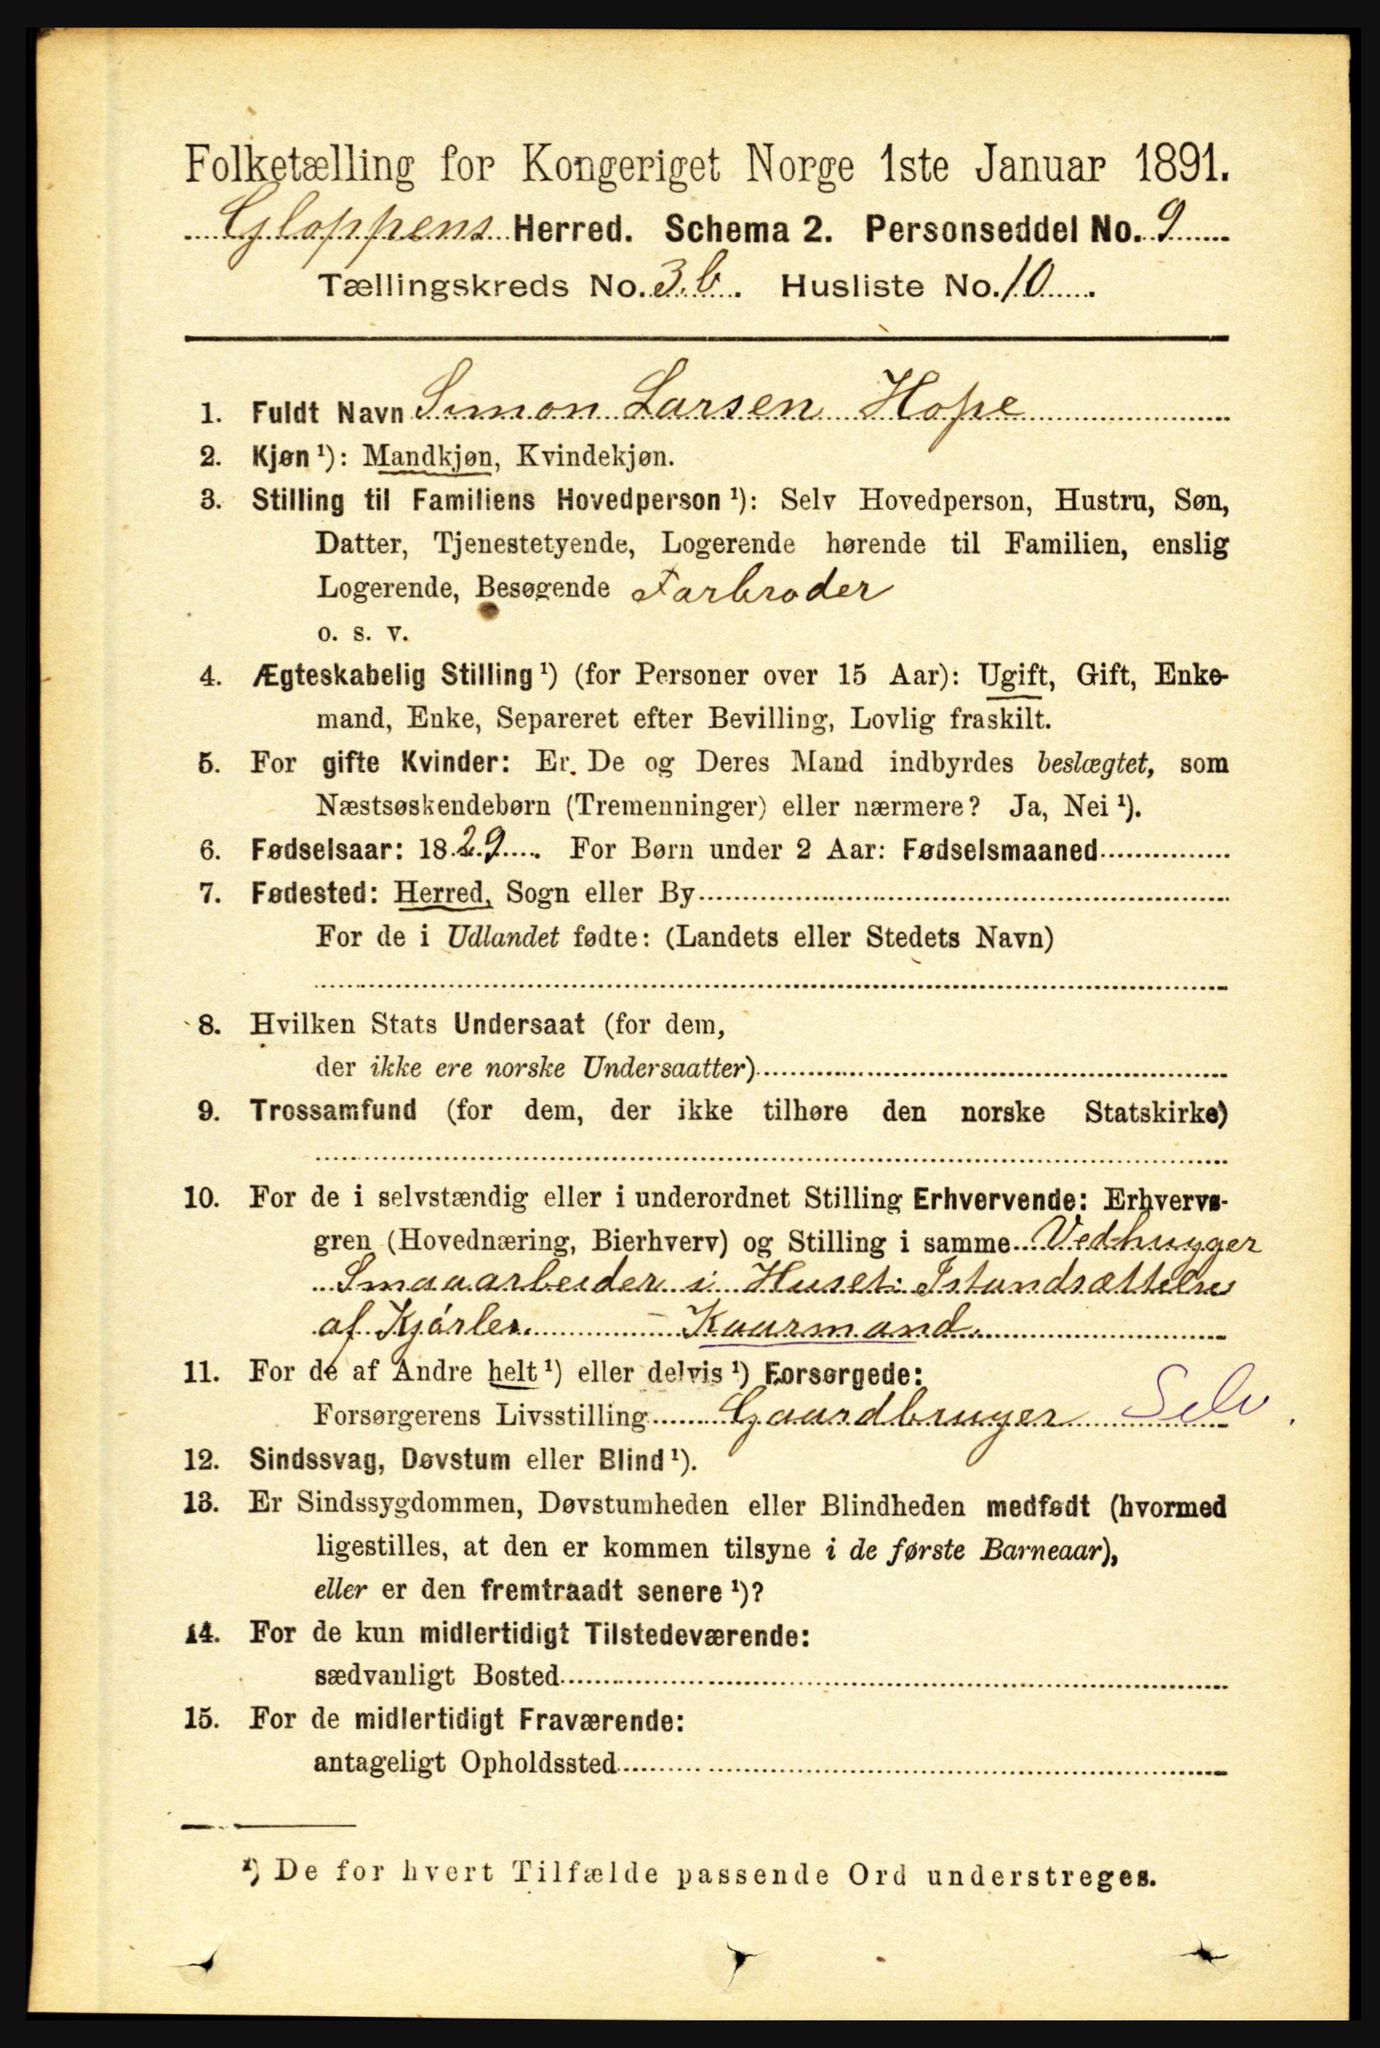 Folketælling for Kongeriget Norge 1ste Januar 1891.
Gloppens Herred. Schema 2. Personseddel No. 9
Tællingskreds No. 3 b. Husliste No. 10.
1. Fuldt Navn Simon Larsen Hope
2. Kjøn ¹): Mandkjøn, Kvindekjøn.
3. Stilling til Familiens Hovedperson ¹): Selv Hovedperson, Hustru, Søn,
Datter, Tjenestetyende, Logerende hørende til Familien, enslig
Logerende, Besøgende Farbroder
o. s. v.
4. Ægteskabelig Stilling ¹) (for Personer over 15 Aar): Ugift, Gift, Enke-
mand, Enke, Separeret efter Bevilling, Lovlig fraskilt.
5. For gifte Kvinder: Er De og Deres Mand indbyrdes beslægtet, som
Næstsøskendebørn (Tremenninger) eller nærmere? Ja, Nei ¹).
6. Fødselsaar: 1829. For Børn under 2 Aar: Fødselsmaaned
7. Fødested: Herred, Sogn eller By
For de i Udlandet fødte: (Landets eller Stedets Navn)
8. Hvilken Stats Undersaat (for dem,
der ikke ere norske Undersaatter)
9. Trossamfund (for dem, der ikke tilhøre den norske Statskirke)
10. For de i selvstændig eller i underordnet Stilling Erhvervende: Erhvervs-
gren (Hovednæring, Bierhverv) og Stilling i samme Vedhugger
Smaaarbeider i Huset: Istandsættelse
af Kjørler. — Kaarmand.
11. For de af Andre helt ¹) eller delvis ¹) Forsørgede:
Forsørgerens Livsstilling Gaardbruger Selv.
12. Sindssvag, Døvstum eller Blind ¹).
13. Er Sindssygdommen, Døvstumheden eller Blindheden medfødt (hvormed
ligestilles, at den er kommen tilsyne i de første Barneaar),
eller er den fremtraadt senere ¹)?
14. For de kun midlertidigt Tilstedeværende:
sædvanligt Bosted
15. For de midlertidigt Fraværende:
antageligt Opholdssted
¹) De for hvert Tilfælde passende Ord understreges.